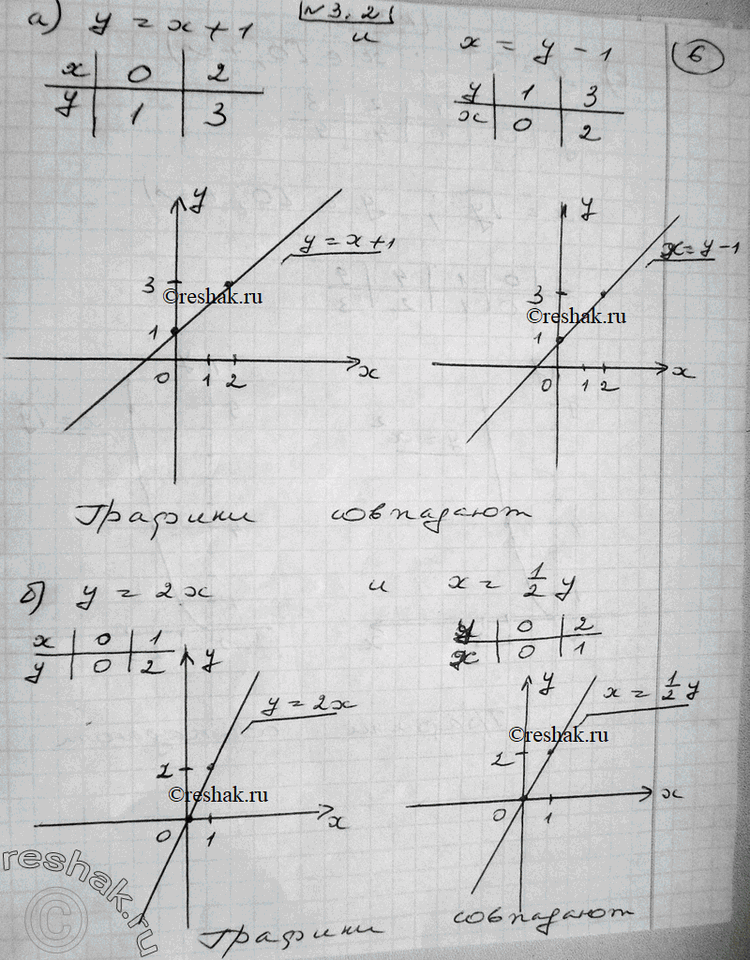 №3.2
а) y = x + 1 и x = y - 1 6
x 0 2
y 1 3
y 1 3
x 0 2
y
y = x + 1
3
©reshak.ru
1
0 1 2 x
y
x = y - 1
3
©reshak.ru
1
0 1 2 x
Графики совпадают
б) y = 2x и x = 1/2 y
x 0 1
y 0 2
y 0 2
x 0 1
y
y = 2x
2
©reshak.ru
0 1 x
y
x = 1/2 y
©reshak.ru
2
0 1 x
Графики совпадают
reshak.ru
©